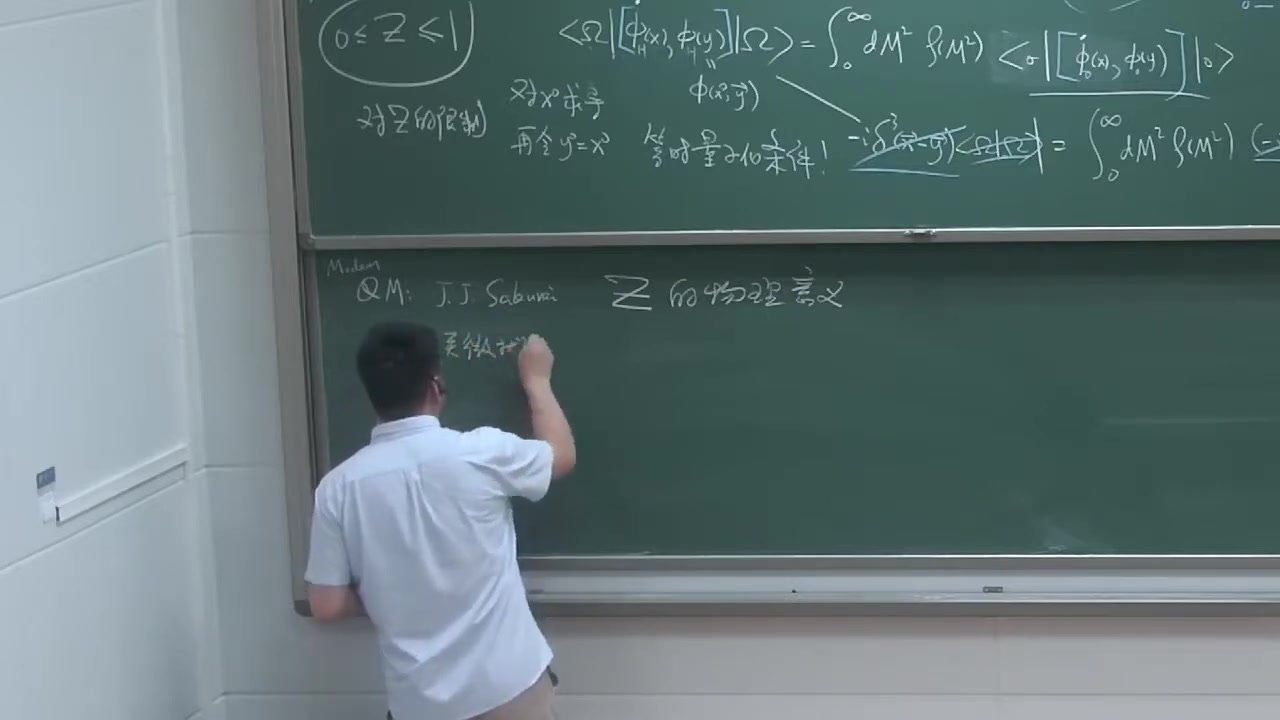 0 ≤ Z ≤ 1
对Z的限制
<Ω|[φ̇_H(x), φ_H(y)]|Ω> = ∫₀^∞ dM² ρ(M²) <0|[φ̇₀(x), φ₀(y)]|0>
φ(x⁰, y⃗)
对x⁰求导
再令y⁰=x⁰
等时量子化条件!
-iδ³(x⃗-y⃗)<Ω|Ω> = ∫₀^∞ dM² ρ(M²) (-
Modern
QM: J. J. Sakurai
Z 的物理意义